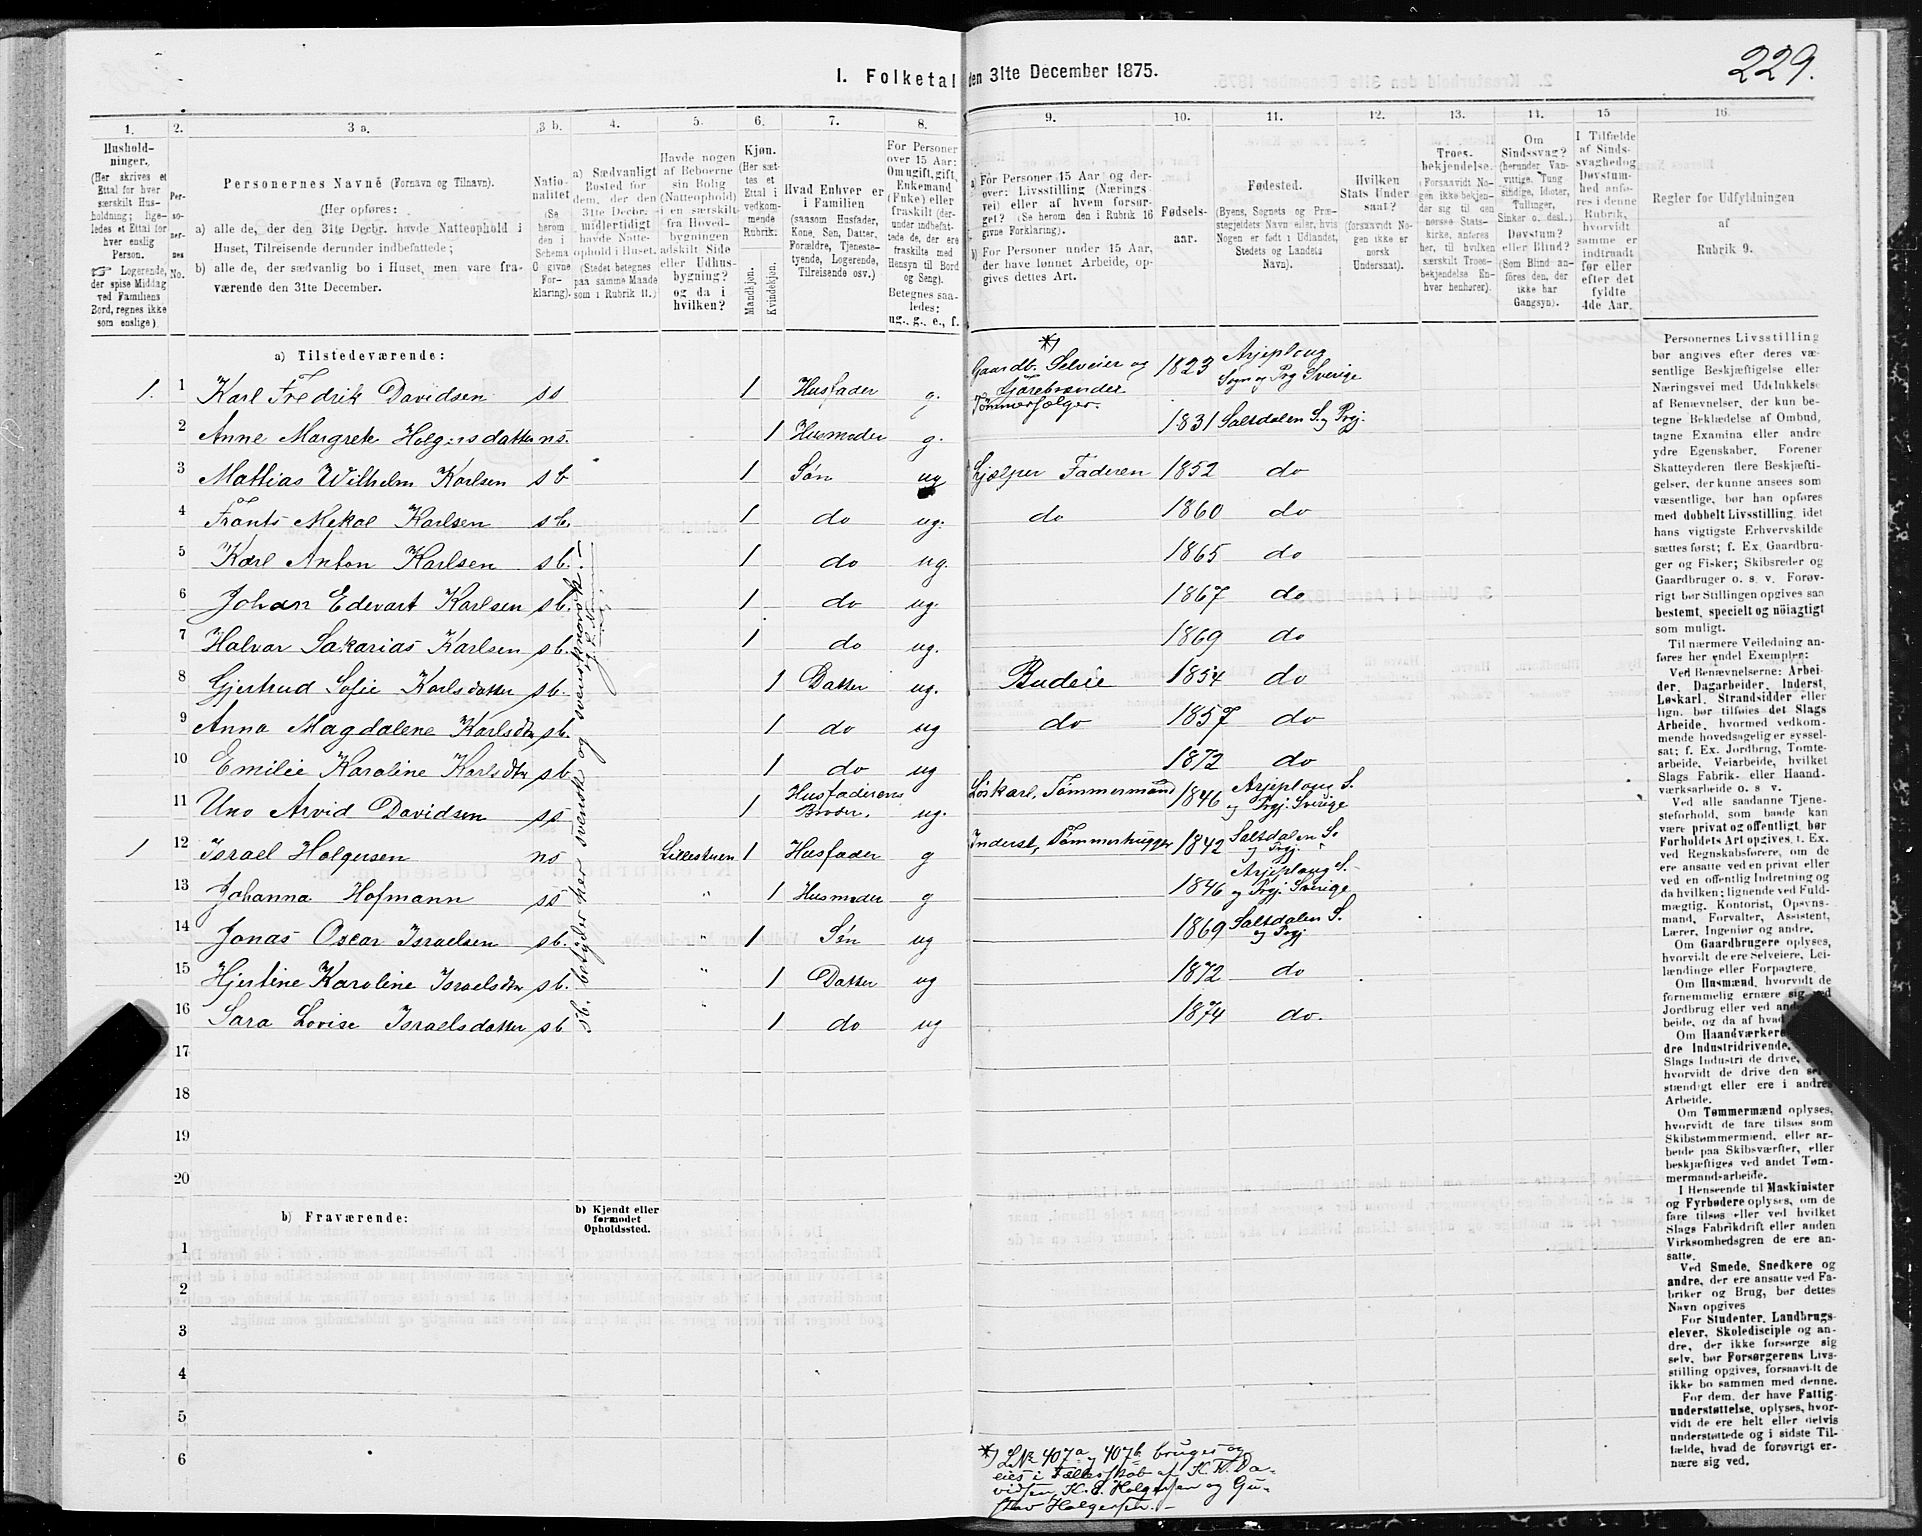 229.
I. Folketal den 31te December 1875.
1. 2. 3 a. 3 b. 4. 5. 6. 7. 8. 9. 10. 11. 12. 13. 14. 15 16.
Hushold-
ninger.
(Her skrives et
Ettal for hver
særskilt Hus-
holdning; lige-
ledes et Ettal for
hver enslig
Person.
☞ Logerende,
der spise Middag
ved Familiens
Bord, regnes ikke
som enslige)
Per-
so-
ner-
nes
No.
Personernes Navne (Fornavn og Tilnavn).
(Her opføres:
a) alle de, der den 31te Decbr. havde Natteophold i
Huset, Tilreisende derunder indbefattede;
b) alle de, der sædvanlig bo i Huset, men vare fra-
værende den 31te December.
Natio-
nalitet
(Se
herom
den i
Schema
O givne
For-
klaring).
a) Sædvanligt
Bosted for
dem, der den
31te Decbr.
midlertidigt
havde Natte-
ophold i Huset.
(Stedet betegnes
paa samme Maade
som i Rubrik 11.)
Havde nogen
af Beboerne
sin Bolig
(Natteophold)
i en særskilt
fra Hoved-
bygningen
adskilt Side-
eller Udhus-
bygning?
og da i
hvilken?
Kjøn.
(Her sæt-
tes et
Ettal i
vedkom-
mende
Rubrik:
Mandkjøn.
Kvindekjøn.
Hvad Enhver er
i Familien
(saasom Husfader,
Kone, Søn, Datter,
Forældre, Tjeneste-
tyende, Logerende,
Tilreisende osv.)
For Personer
over 15 Aar:
Om ugift, gift,
Enkemand
(Enke) eller
fraskilt (der-
under indbefat-
tede de, der ere
fraskilte med
Hensyn til Bord
og Seng).
Betegnes saa-
ledes:
ug., g., e., f.
a) For Personer 15 Aar og der-
over: Livsstilling (Nærings-
vei) eller af hvem forsør-
get? (Se herom den i Rubrik 16
givne Forklaring).
b) For Personer under 15 Aar,
der have lønnet Arbeide, op-
gives dettes Art.
Fødsels-
aar.
Fødested.
(Byens, Sognets og Præ-
stegjeldets Navn, eller hvis
Nogen er født i Udlandet,
Stedets og Landets
Navn).
Hvilken
Stats Under-
saat?
(forsaavidt No-
gen ikke er
norsk
Undersaat).
Troes-
bekjendelse.
(Forsaavidt No-
gen ikke bekjen-
der sig til den
norske Stats-
kirke, anføres
her, til hvilken
særskilt Troes-
bekjendelse En-
hver henhører).
Om
Sindssvag?
(herunder Van-
vittige, Tung
sindige, Idioter,
Tullinger,
Sinker o. desl.)
Døvstum?
eller Blind?
(Som Blind an-
føres den, der
ikke har
Gangsyn).
I Tilfælde
af Sinds-
svaghed og
Døvstum-
hed anfø-
res i denne
Rubrik,
hvorvidt
samme er
indtraadt
før eller
efter det
fyldte
4de Aar.
Regler for Udfyldningen
af
Rubrik 9.
a) Tilstedeværende:
1. 1 Karl Fredrik Davidsen ss 1 Husfader g. *) Gaardb. Selveier og Tjærebrænder Tømmerfælger. 1823 Arjeploug Sogn og Prg Sverige
2 Anne Margrete Holgersdatter ns. 1 Husmoder g. 1831 Saltdalen S. og Prgj.
3 Mattias Wilhelm Karlsen sb 1 Søn ug Hjælper Faderen 1852 do
4 Frants Mekal Karlsen sb. 1 do ug. do 1860 do
5 Karl Anton Karlsen sb. 1 do ug. 1865 do
6 Johan Edevart Karlsen sb. 1 do ug. 1867 do
7 Halvar Sakarias Karlsen sb. 1 do ug. 1869 do
8 Gjertrud Sofie Karlsdatter sb. 1 Datter ug. Budeie 1854 do
9 Anna Magdalene Karlsdtr sb. 1 do ug do 1857 do
10 Emilie Karoline Karlsdtr sb 1 do ug 1872 do
11 Uno Arvid Davidsen ss 1 Husfaderens Broder. ug. Løskarl, Tømmermand 1846 Arjeploug S. og Prgj. Sverige
1 12 Israel Holgersen ns Lillestuen 1 Husfader g Inderst, Tømmerhugger 1842 Saltdalen S. og Prgj.
13 Johanna Hofmann ss " 1 Husmoder g 1846 Arjeploug S. og Prgj. Sverige
14 Jonas Oscar Israelsen sb. " 1 Søn ug 1869 Saltdalen S. og Prgj
15 Hjertine Karoline Israelsdtr sb. " 1 Datter ug 1872 do
16 Sara Lovise Israelsdatter sb " 1 do ug 1874 do.
17
18
19
20
sb. betyder her svensk og svensk norsk!
b) Fraværende:
b) Kjendt eller
formodet
Opholdssted.
1
2
3
4
5
6
*) LNr 407a og 407b bruges og
eies i Fællesskab af K. F. Da-
vidsen, K. E. Holgersen og Gu-
stav Holgersen. –
Personernes Livsstilling
bør angives efter deres væ-
sentlige Beskjæftigelse eller
Næringsvei med Udelukkelse
af Benævnelser, der kun be-
tegne Beklædelse af Ombud,
tagne Examina eller andre
ydre Egenskaber. Forener
Skatteyderen flere Beskjæfti-
gelser, der kunne ansees som
væsentlige, bør han opføres
med dobbelt Livsstilling, idet
hans vigtigste Erhvervskilde
sættes først; f. Ex. Gaardbru-
ger og Fisker; Skibsreder og
Gaardbruger o. s. v. Forøv-
rigt bør Stillingen opgives saa
bestemt, specielt og nöiagtigt
som muligt.
Til nærmere Veiledning an-
føres her endel Exempler:
Ved Benævnelserne: Arbei-
der, Dagarbeider, Inderst,
Løskarl, Strandsidder eller
lign. bør tilføies det Slags
Arbeide, hvormed vedkom-
mende hovedsagelig er syssel-
sat; f. Ex. Jordbrug, Tomte-
arbeide, Veiarbeide, hvilket
Slags Fabrik- eller Haand-
værksarbeide o. s. v.
Ved alle saadanne Tjene-
steforhold, som baade kan
være privat og offentligt, bør
Forholdets Art opgives, f. Ex.
ved Regnskabsførere, om de
ere ansatte ved en privat eller
ved en offentlig Indretning og
da hvilken; lignende ved Fuld-
mægtig, Kontorist, Opsyns-
mand, Forvalter, Assistent,
Lærer, Ingeniør og andre.
Om Gaardbrugere oplyses,
hvorvidt de ere Selveiere, Lei-
lændinge eller Forpagtere.
Om Husmænd, hvorvidt de
fornemmelig ernære sig ved
Jordbrug eller ved an
beide, og da af hvad
Om Haandværkere
dre Industridrivende,
Slags Industri de drive,
hvorvidt de drive den sel
stændigt eller ere i andres
Arbeide.
Om Tømmermænd oplyses,
hvorvidt de fare tilsøs som
Skibstømmermænd, eller ar-
beide paa Skibsværfter, eller
beskjæftiges ved andet Tøm-
mermandsarbeide.
I Henseende til Maskinister
og Fyrbødere oplyses, om de
fare tilsøs eller ved hvilket
Slags Fabrikdrift eller anden
Virksomhedsgren de ere an-
satte.
Ved Smede, Snedkere og
andre, der ere ansatte ved Fa-
briker og Brug, bør dettes
Navn opgives
For Studenter, Landbrugs-
elever, Skoledisciple og an-
dre, der ikke forsørge sig
selv, bør Forsørgerens Livs-
stilling opgives, forsaavidt de
ikke bo sammen med denne.
For dem, der have Fattig-
understøttelse, oplyses, hvor-
vidt de ere helt eller delvis
understøttede og i sidste Til-
fælde, hvad de forøvrigt er-
nære sig ved.